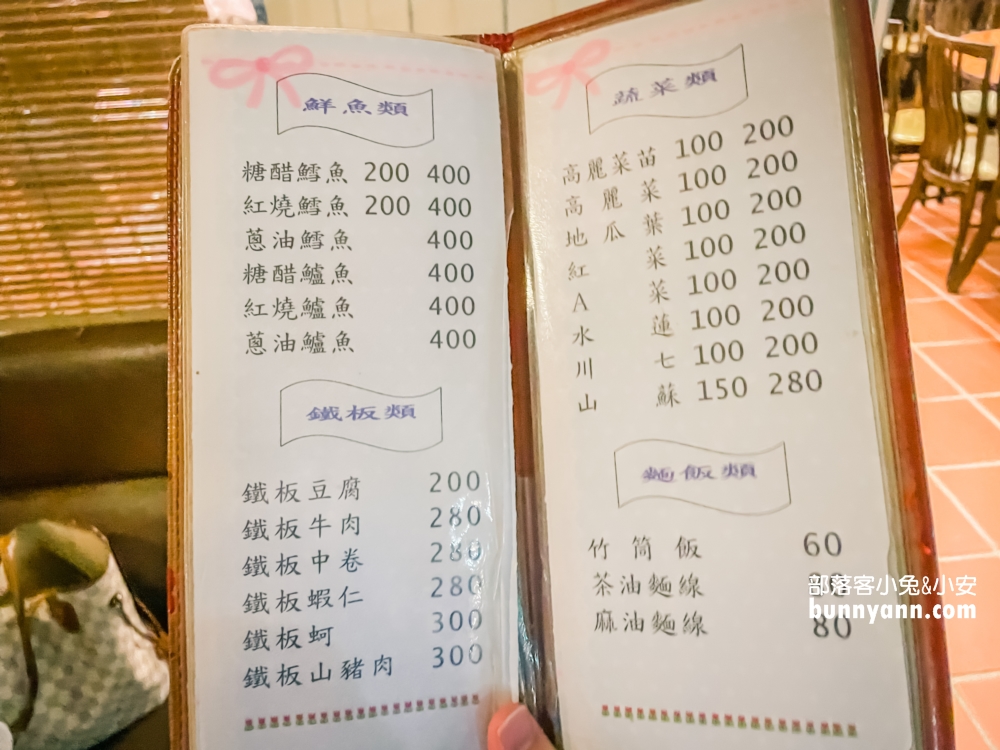 鮮魚類
糖醋鱈魚 200 400
紅燒鱈魚 200 400
蔥油鱈魚 400
糖醋鱸魚 400
紅燒鱸魚 400
蔥油鱸魚 400
鐵板類
鐵板豆腐 200
鐵板牛肉 280
鐵板中卷 280
鐵板蝦仁 280
鐵板蚵 300
鐵板山豬肉 300
蔬菜類
高麗菜苗 100 200
高麗菜 100 200
地瓜葉 100 200
紅菜 100 200
A菜 100 200
水蓮 100 200
川七 100 200
山蘇 150 280
麵飯類
竹筒飯 60
茶油麵線
麻油麵線 80
部落客小兔&小安
bunnyann.com